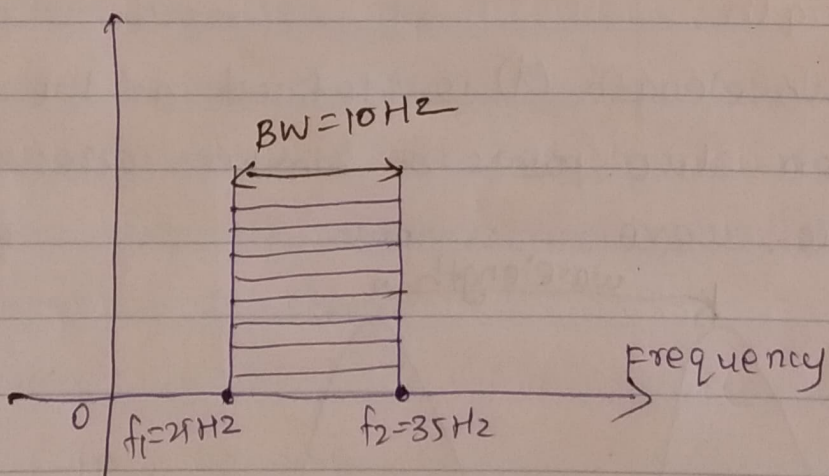 BW=10HZ
Frequency
0
f1=25HZ
f2=35HZ